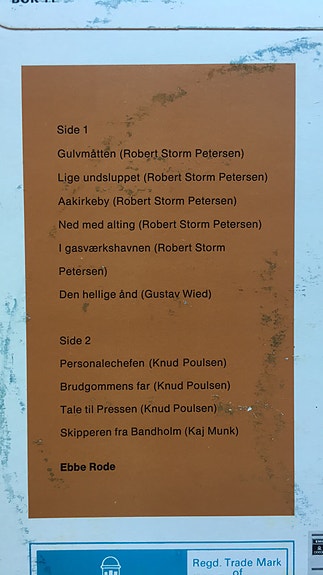 Side 1
Gulvmåtten (Robert Storm Petersen)
Lige undsluppet (Robert Storm Petersen)
Aakirkeby (Robert Storm Petersen)
Ned med alting (Robert Storm Petersen)
I gasværkshavnen (Robert Storm
Petersen)
Den hellige ånd (Gustav Wied)
Side 2
Personalechefen (Knud Poulsen)
Brudgommens far (Knud Poulsen)
Tale til Pressen (Knud Poulsen)
Skipperen fra Bandholm (Kaj Munk)
Ebbe Rode
Regd. Trade Mark
of